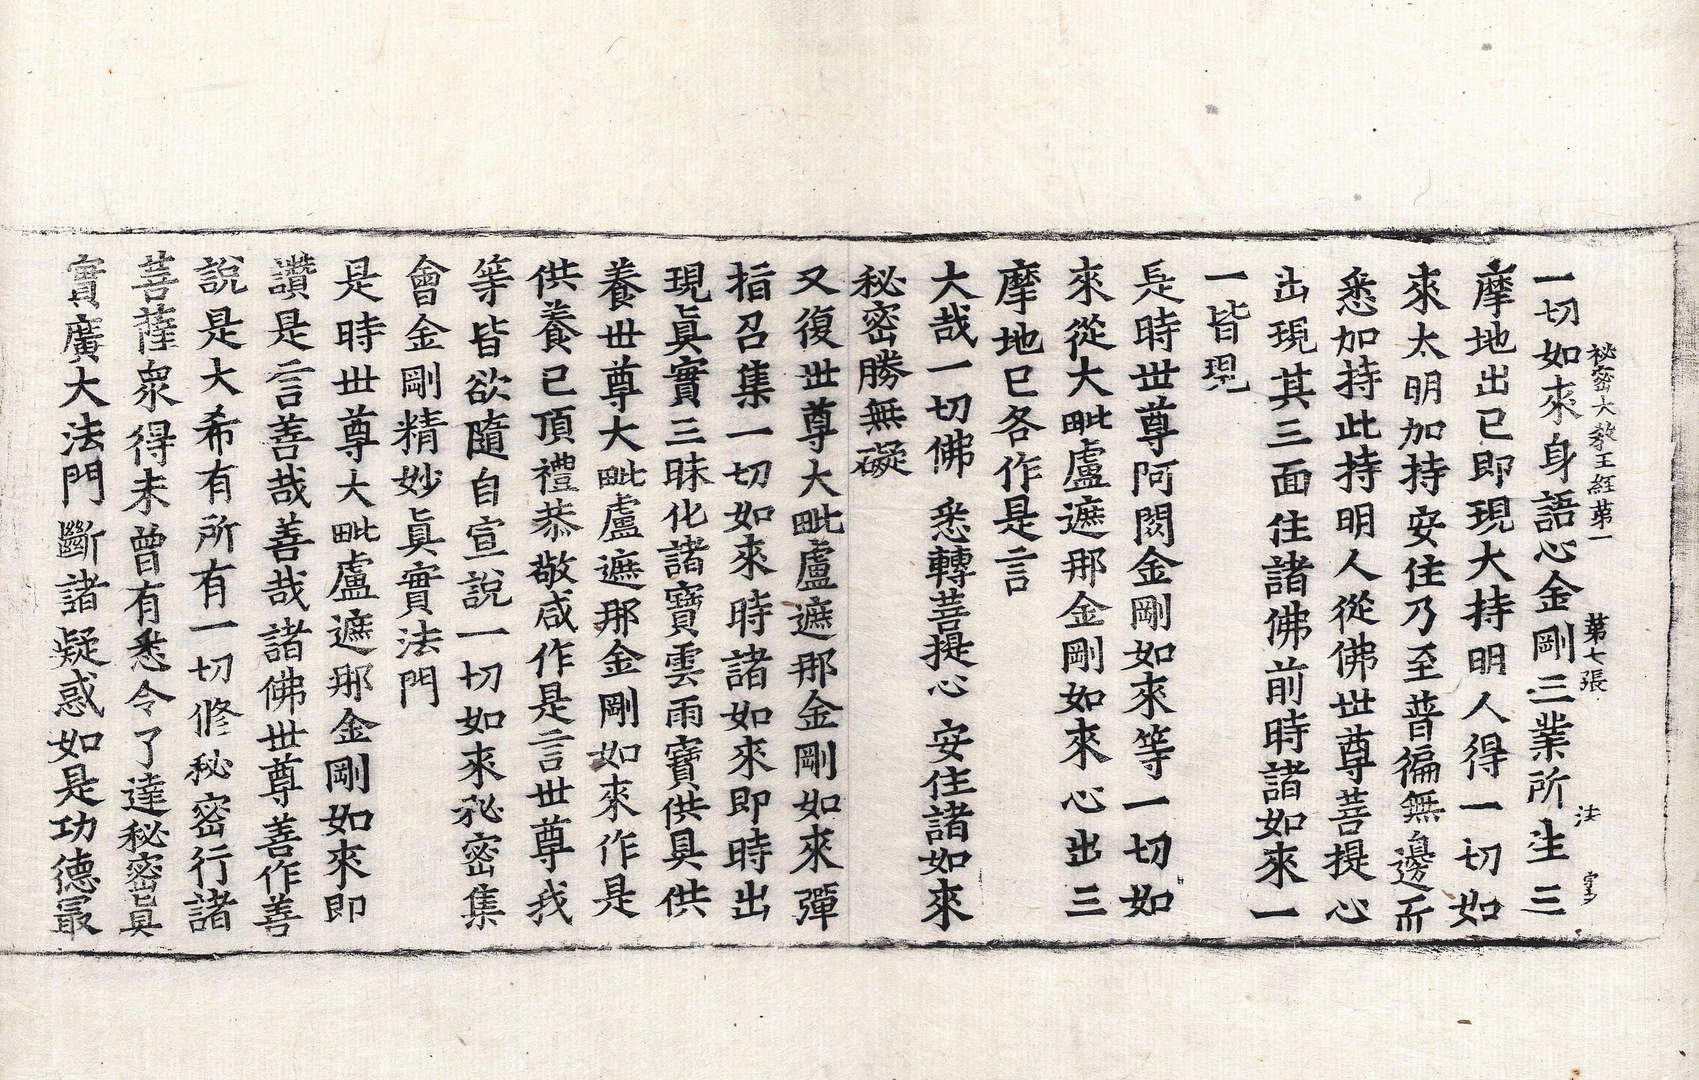 秘密大教王經第一 第七張 法
一切如來身語心金剛三業所生三
摩地出已即現大持明人得一切如
來太明加持安住乃至普徧無邊所
悉加持此持明人從佛世尊菩提心
出現其三面住諸佛前時諸如來一
一皆現
是時世尊阿閦金剛如來等一切如
來從大毗盧遮那金剛如來心出三
摩地已各作是言
大哉一切佛 悉轉菩提心 安住諸如來
秘密勝無礙
又復世尊大毗盧遮那金剛如來彈
指召集一切如來時諸如來即時出
現眞實三昧化諸寶雲雨寶供具供
養世尊大毗盧遮那金剛如來作是
供養已頂禮恭敬咸作是言世尊我
等皆欲隨自宣說一切如來秘密集
會金剛精妙眞實法門
是時世尊大毗盧遮那金剛如來即
讚是言善哉善哉諸佛世尊善作善
說是大希有所有一切修秘密行諸
菩薩衆得未曾有悉令了達秘密眞
實廣大法門斷諸疑惑如是功德最